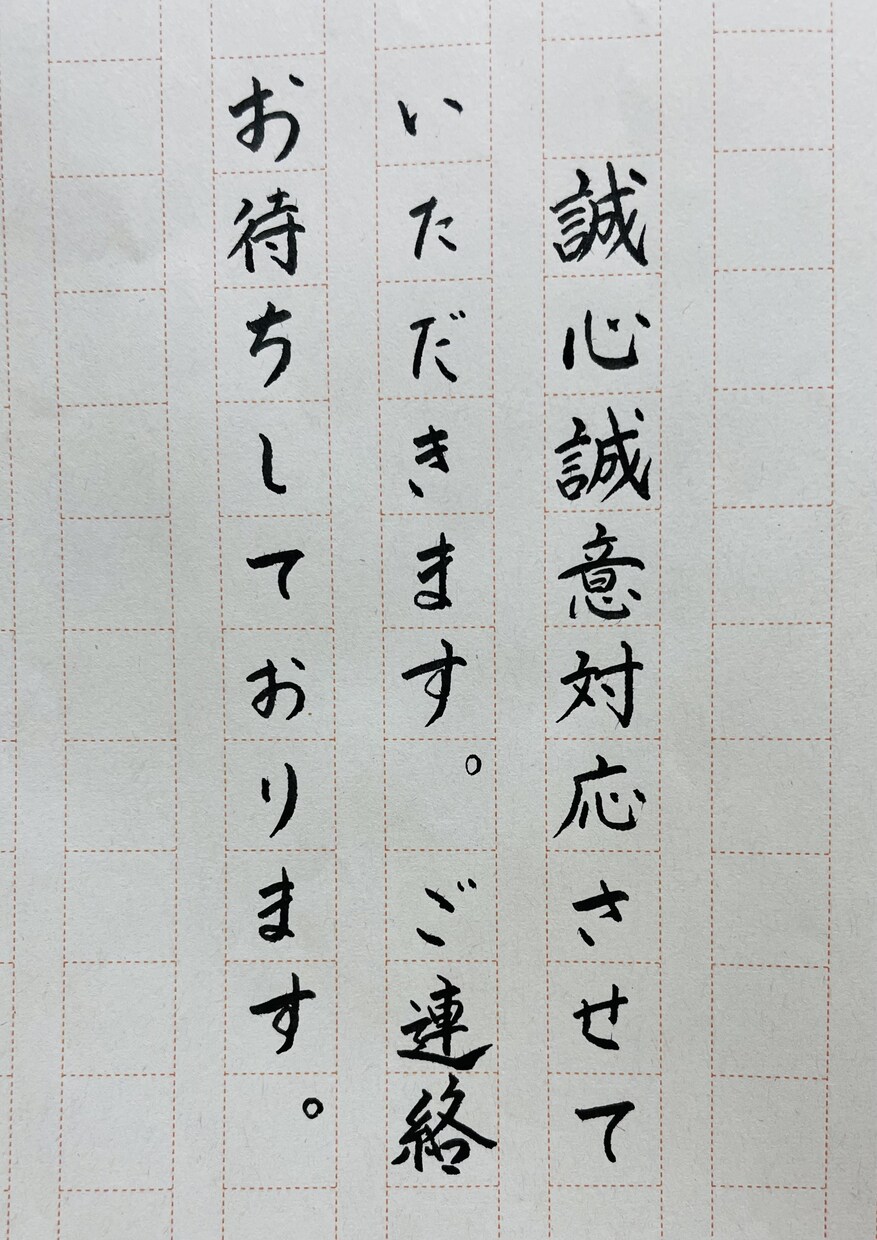 誠心誠意対応させて
いただきます。ご連絡
お待ちしております。